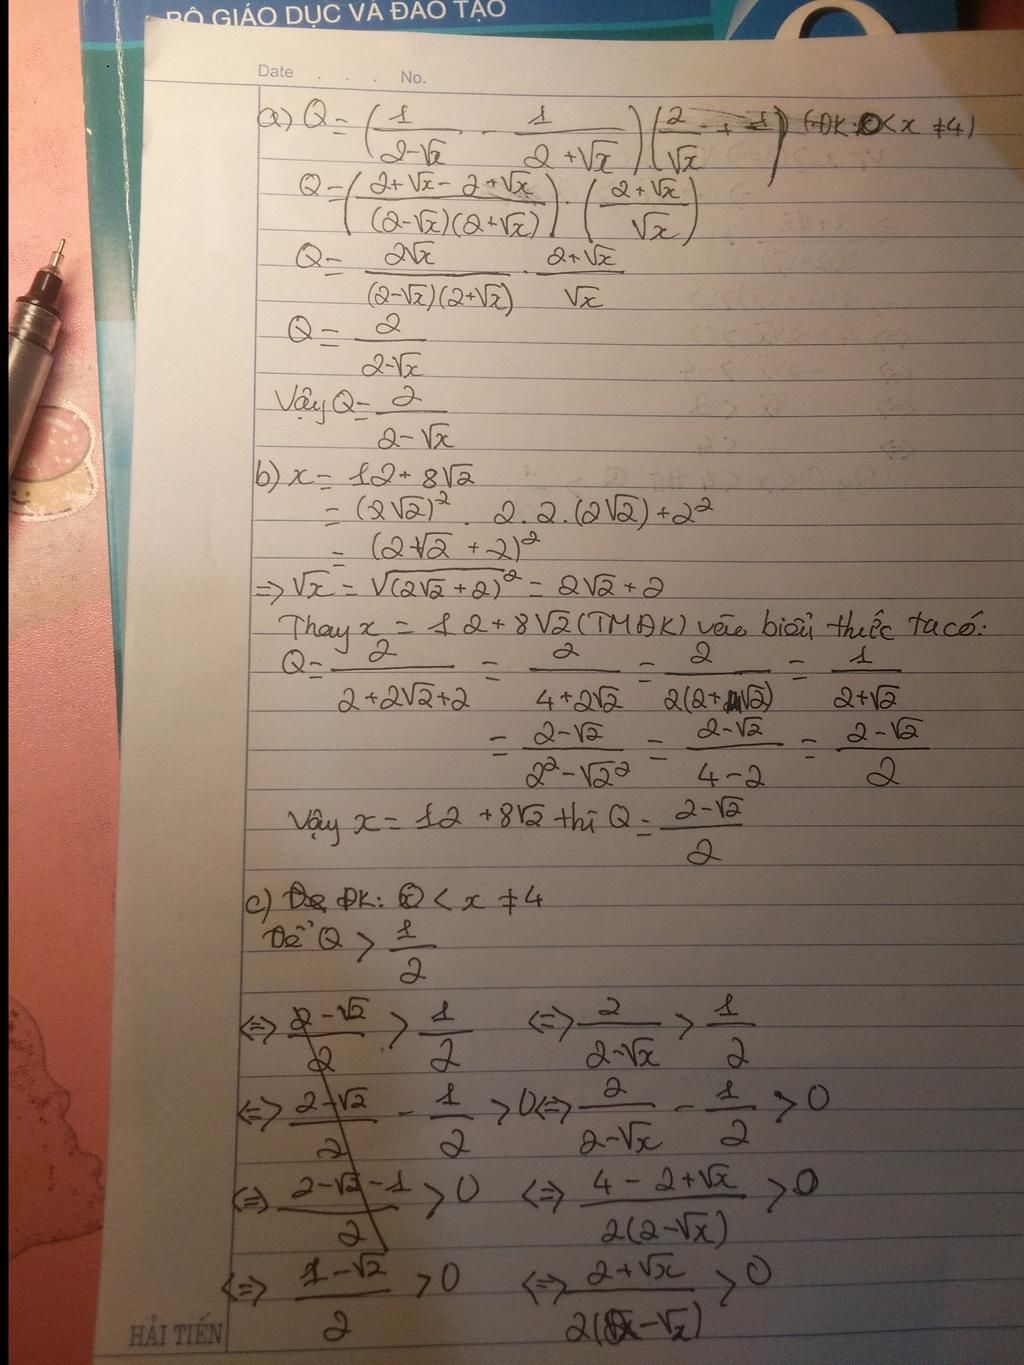 BỘ GIÁO DỤC VÀ ĐÀO TẠO
Date . . . No.
a) Q = (1/(2-√x) - 1/(2+√x)) (2/√x + 1) (ĐK: 0 < x ≠ 4)
Q = ((2+√x - 2+√x)/((2-√x)(2+√x))) . ((2+√x)/√x)
Q = 2√x/((2-√x)(2+√x)) . (2+√x)/√x
Q = 2/(2-√x)
Vậy Q = 2/(2-√x)
b) x = 12 + 8√2
= (2√2)² . 2.2.(2√2) + 2²
= (2√2 + 2)²
=> √x = √(2√2 + 2)² = 2√2 + 2
Thay x = 12 + 8√2 (TMĐK) vào biểu thức ta có:
Q = 2/(2+2√2+2) = 2/(4+2√2) = 2/(2(2+√2)) = 1/(2+√2)
= (2-√2)/(2²-√2²) = (2-√2)/(4-2) = (2-√2)/2
Vậy x = 12 + 8√2 thì Q = (2-√2)/2
c) ĐK: 0 < x ≠ 4
Để Q > 1/2
<=> (2-√2)/2 > 1/2 <=> 2/(2-√x) > 1/2
<=> (2-√2)/2 - 1/2 > 0 <=> 2/(2-√x) - 1/2 > 0
<=> (2-√2-1)/2 > 0 <=> (4-2+√x)/(2(2-√x)) > 0
<=> (1-√2)/2 > 0 <=> (2+√x)/(2(2-√x)) > 0
HẢI TIẾN